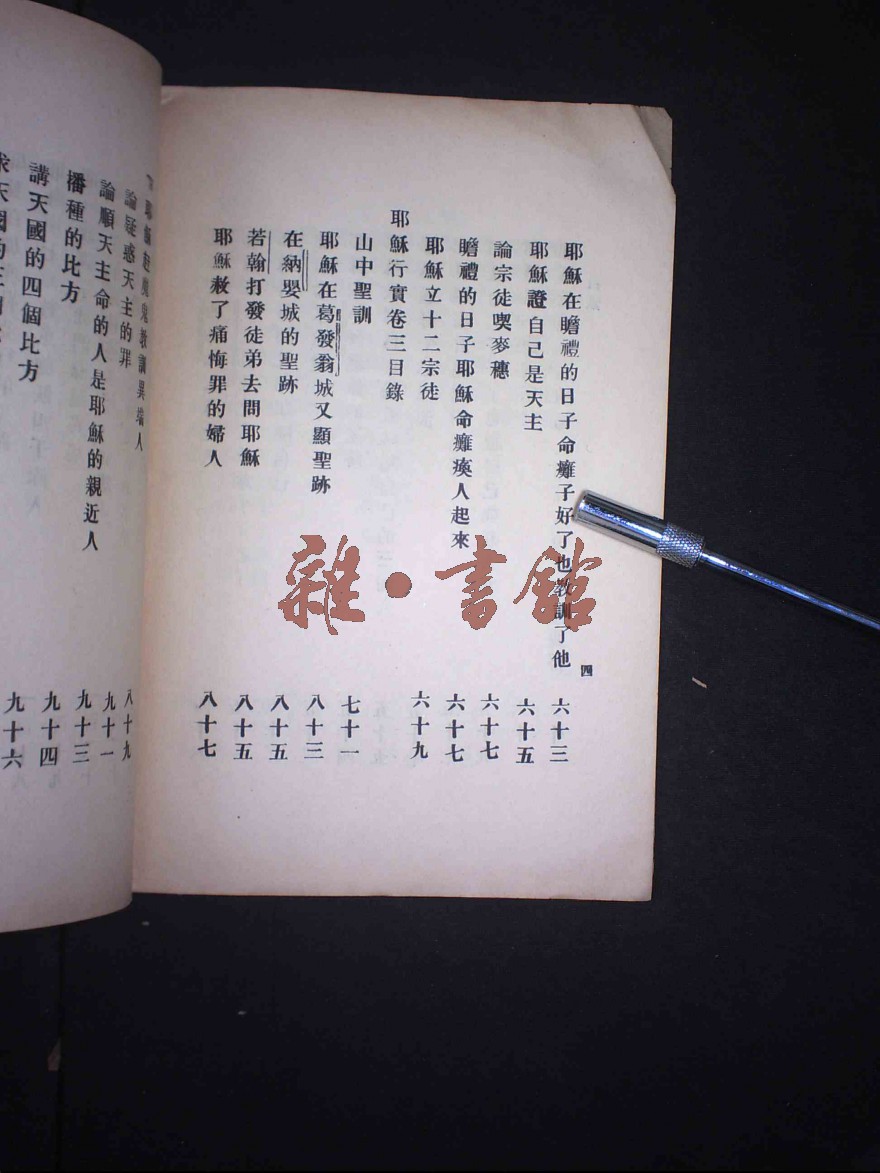 四
耶穌在瞻禮的日子命癱子好了也教訓了他 六十三
耶穌證自己是天主 六十五
論宗徒喫麥穗 六十七
瞻禮的日子耶穌命癱瘓人起來 六十七
耶穌立十二宗徒 六十九
耶穌行實卷三目錄
山中聖訓 七十一
耶穌在葛發翁城又顯聖跡 八十三
在納婴城的聖跡 八十五
若翰打發徒弟去問耶穌 八十五
耶穌赦了痛悔罪的婦人 八十七
耶穌赶魔鬼教訓異端人 八十九
論疑惑天主的罪 九十一
論順天主命的人是耶穌的親近人 九十三
播種的比方 九十四
講天國的四個比方 九十六
雜·書館